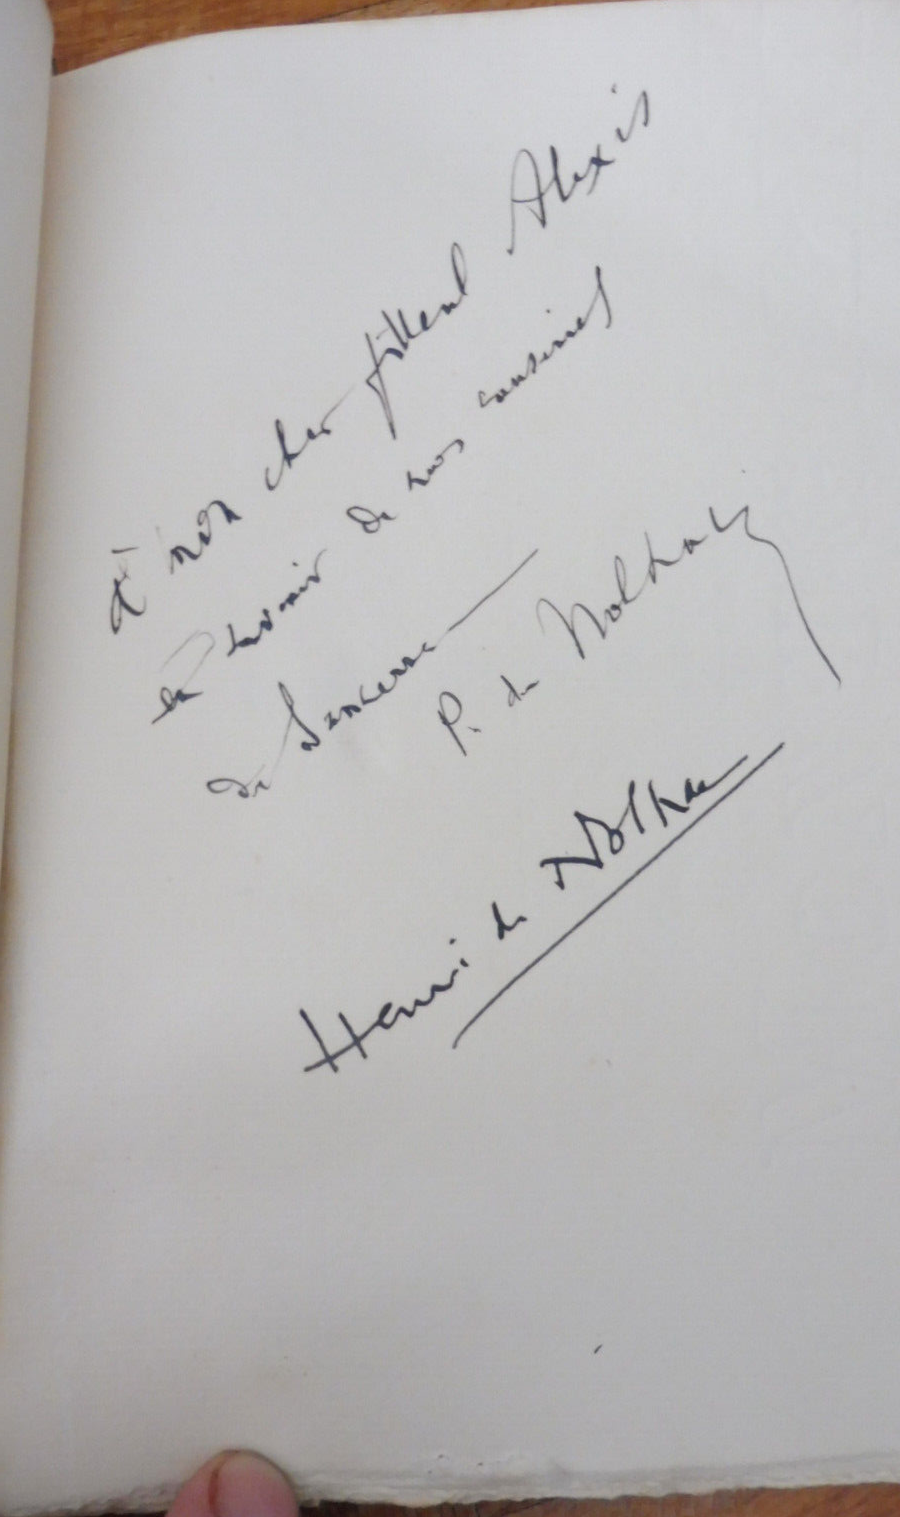 À mon cher filleul Alexis
en souvenir de nos cousines
de Sancerre
P. de Nolhac
Henri de Nolhac